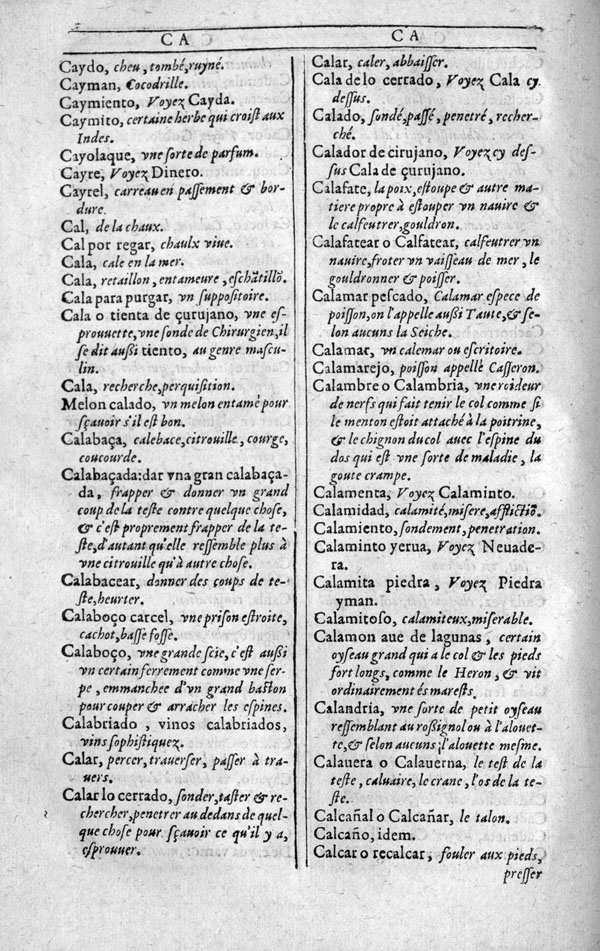 CA
Caydo, cheu, tombé, ruyné.
Cayman, Cocodrille.
Caymiento, Voyez Cayda.
Caymito, certaine herbe qui croist aux
Indes.
Cayolaque, vne sorte de parfum.
Cayre, Voyez Dinero.
Cayrel, carreau en passement & bor-
dure.
Cal, de la chaux.
Cal por regar, chaulx viue.
Cala, cale en la mer.
Cala, retaillon, entameure, eschãtillõ.
Cala para purgar, vn suppositoire.
Cala o tienta de çurujano, vne es-
prouuette, vne sonde de Chirurgien, il
se dit aussi tiento, au genre mascu-
lin.
Cala, recherche, perquisition.
Melon calado, vn melon entamé pour
sçauoir s'il est bon.
Calabaça, calebace, citrouille, courge,
coucourde.
Calabaçada: dar vna gran calabaça-
da, frapper & donner vn grand
coup de la teste contre quelque chose,
& c'est proprement frapper de la te-
ste, d'autant qu'elle ressemble plus à
vne citrouille qu'à autre chose.
Calabacear, donner des coups de te-
ste, heurter.
Calaboço carcel, vne prison estroite,
cachot, basse fosse.
Calaboço, vne grande scie, c'est aussi
vn certain ferrement comme vne ser-
pe, emmanchee d'vn grand baston
pour couper & arracher les espines.
Calabriado, vinos calabriados,
vins sophistiquez.
Calar, percer, trauerser, passer à tra-
uers.
Calar lo cerrado, sonder, taster & re-
chercher, penetrer au dedans de quel-
que chose pour sçauoir ce qu'il y a,
esprouuer.
CA
Calar, caler, abbaisser.
Cala de lo cerrado, Voyez Cala cy
dessus.
Calado, sondé, passé, penetré, recher-
ché.
Calador de cirujano, Voyez cy des-
sus Cala de çurujano.
Calafate, la poix, estoupe & autre ma-
tiere propre à estouper vn nauire &
le calfeutrer, gouldron.
Calafatear o Calfatear, calfeutrer vn
nauire, froter vn vaisseau de mer, le
gouldronner & poisser.
Calamar pescado, Calamar espece de
poisson, on l'appelle aussi Taute, & se-
lon aucuns la Seiche.
Calamar, vn calemar ou escritoire.
Calamarejo, poisson appellé Casseron.
Calambre o Calambria, vne roideur
de nerfs qui fait tenir le col comme si
le menton estoit attaché à la poitrine,
& le chignon du col auec l'espine du
dos qui est vne sorte de maladie, la
goute crampe.
Calamenta, Voyez Calaminto.
Calamidad, calamité, misere, afflictiõ.
Calamiento, sondement, penetration.
Calaminto yerua, Voyez Neuade-
ra.
Calamita piedra, Voyez Piedra
yman.
Calamitoso, calamiteux, miserable.
Calamon aue de lagunas, certain
oyseau grand qui a le col & les pieds
fort longs, comme le Heron, & vit
ordinairement és marests.
Calandria, vne sorte de petit oyseau
ressemblant au rossignol ou à l'alouet-
te, & selon aucuns l'alouette mesme.
Calauera o Calauerna, le test de la
teste, caluaire, le crane, l'os de la te-
ste.
Calcañal o Calcañar, le talon.
Calcaño, idem.
Calcar o recalcar, fouler aux pieds,
presser